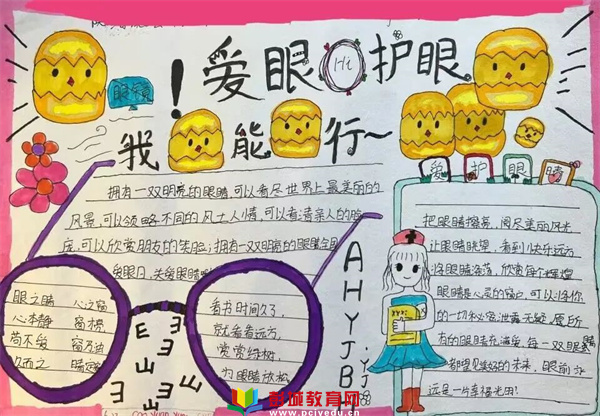 爱眼 Hi 护眼
眼镜
!
我能行~
爱护眼睛
拥有一双明亮的眼睛,可以看尽世界上最美丽的
风景,可以领略不同的风土人情,可以看清亲人的脸
庞,可以欣赏朋友的笑脸,拥有一双明亮的眼睛
爱眼日,关爱眼睛
眼之睛 心之窗
心本静 窗
苟不爱 窗乃
久而之 睛
看书时间久了,
就看看远方,
赏赏绿树,
为眼睛放松
E
ヨ
山
AHYJBH
把眼睛擦亮,阅尽美丽风光
让眼睛眺望,看到快乐远方
将眼睛
眼睛是心灵的窗户,可以将你
的一切秘密泄露无疑,愿所
有的眼睛充满爱,每一双眼睛
都望见美好的未来,眼前亦
远是一片幸福光明!
彭城教育网
www.pcjyedu.cn